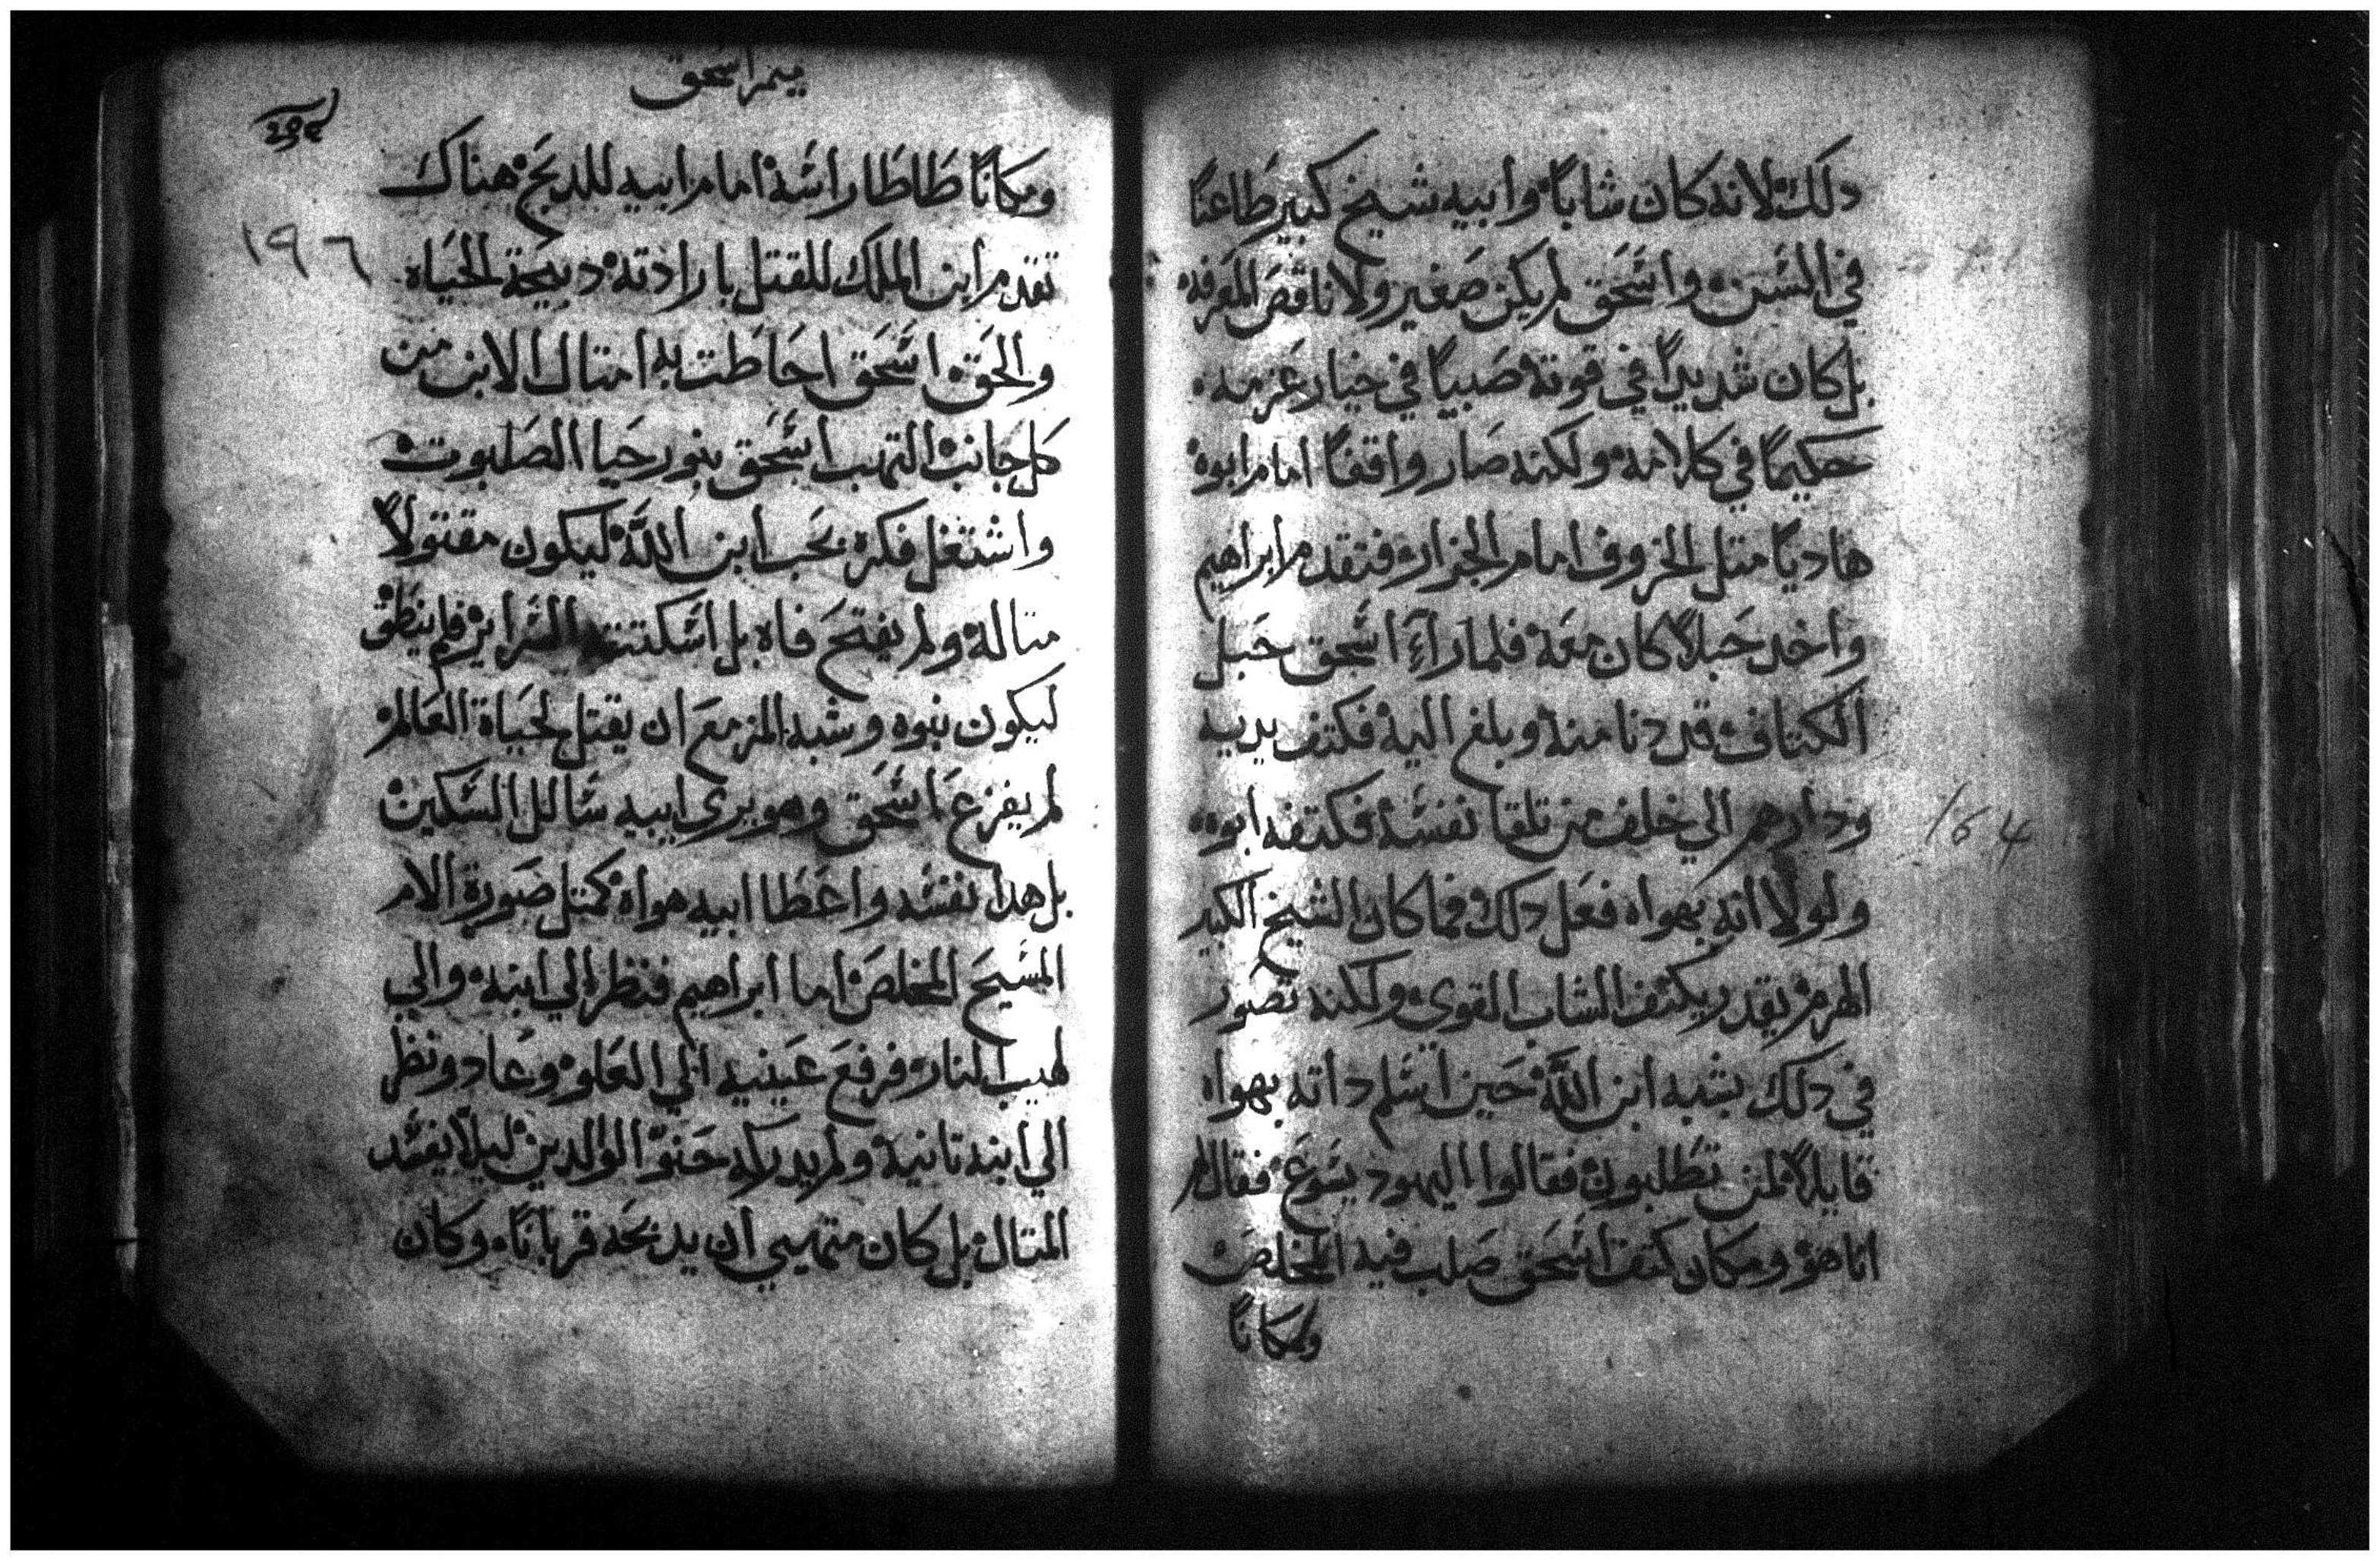 دلك لانه كان شاباً وابيه شيخ كبير طاعنًا
في السن واسحق لم يكن صغير ولا ناقص المعرفه
بل كان شديداً في قوته صبياً في خيار عزمه
حكيمًا في كلامه ولكنه صار واقفًا امام ابوه
هاديًا متل الخروف امام الجزار فتقدم ابراهيم
واخد حبلاً كان معه فلما راءَ اسحق حبل
الكتاف قد دنا منه وبلغ اليه فكتف يديه
ودارهم الي خلف من تلقا نفسه فكتفه ابوه
ولولا انه بهواه فعل دلك فما كان الشيخ الكبير
الهرم يقدر يكتف الشاب القوي ولكنه تصور
في دلك بشبه ابن اللَّه حين اسلم داته بهواه
قايلاً لمن تطلبون فقالوا اليهود يسوع فقال لهم
انا هو ومكان كتف اسحق صلب فيه المخلص
ومكانًا
ميمر اسحق
١٩٦
164
ومكانًا طاطا راسه امام ابيه للدبح هناك
تقدم ابن الملك للقتل بارادته دبيحة الحياه
والحق اسحق احاطت به امتال الابن من
كل جانب التهب اسحق بنور حيا الصلبوت
واشتغل فكره بحب ابن اللَّه ليكون مقتولاً
متاله ولم يفتح فاه بل اسكتته السراير فلم ينطق
ليكون نبوه وشبه المزمع ان يقتل لحياة العالم
لم يفزع اسحق وهو يري ابيه سالل السكين
بل هدا نفسه واعطا ابيه هواه كمتل صورة الام
المسيح المخلص اما ابراهيم فنظر الي ابنه والي
لهيب النار فرفع عينيه الي العلو وعاد ونظر
الي ابنه تانية ولم يدركه حنو الوالدين ليلا يفسد
المتال بل كان متهيي ان يدبحه قربانًا وكان